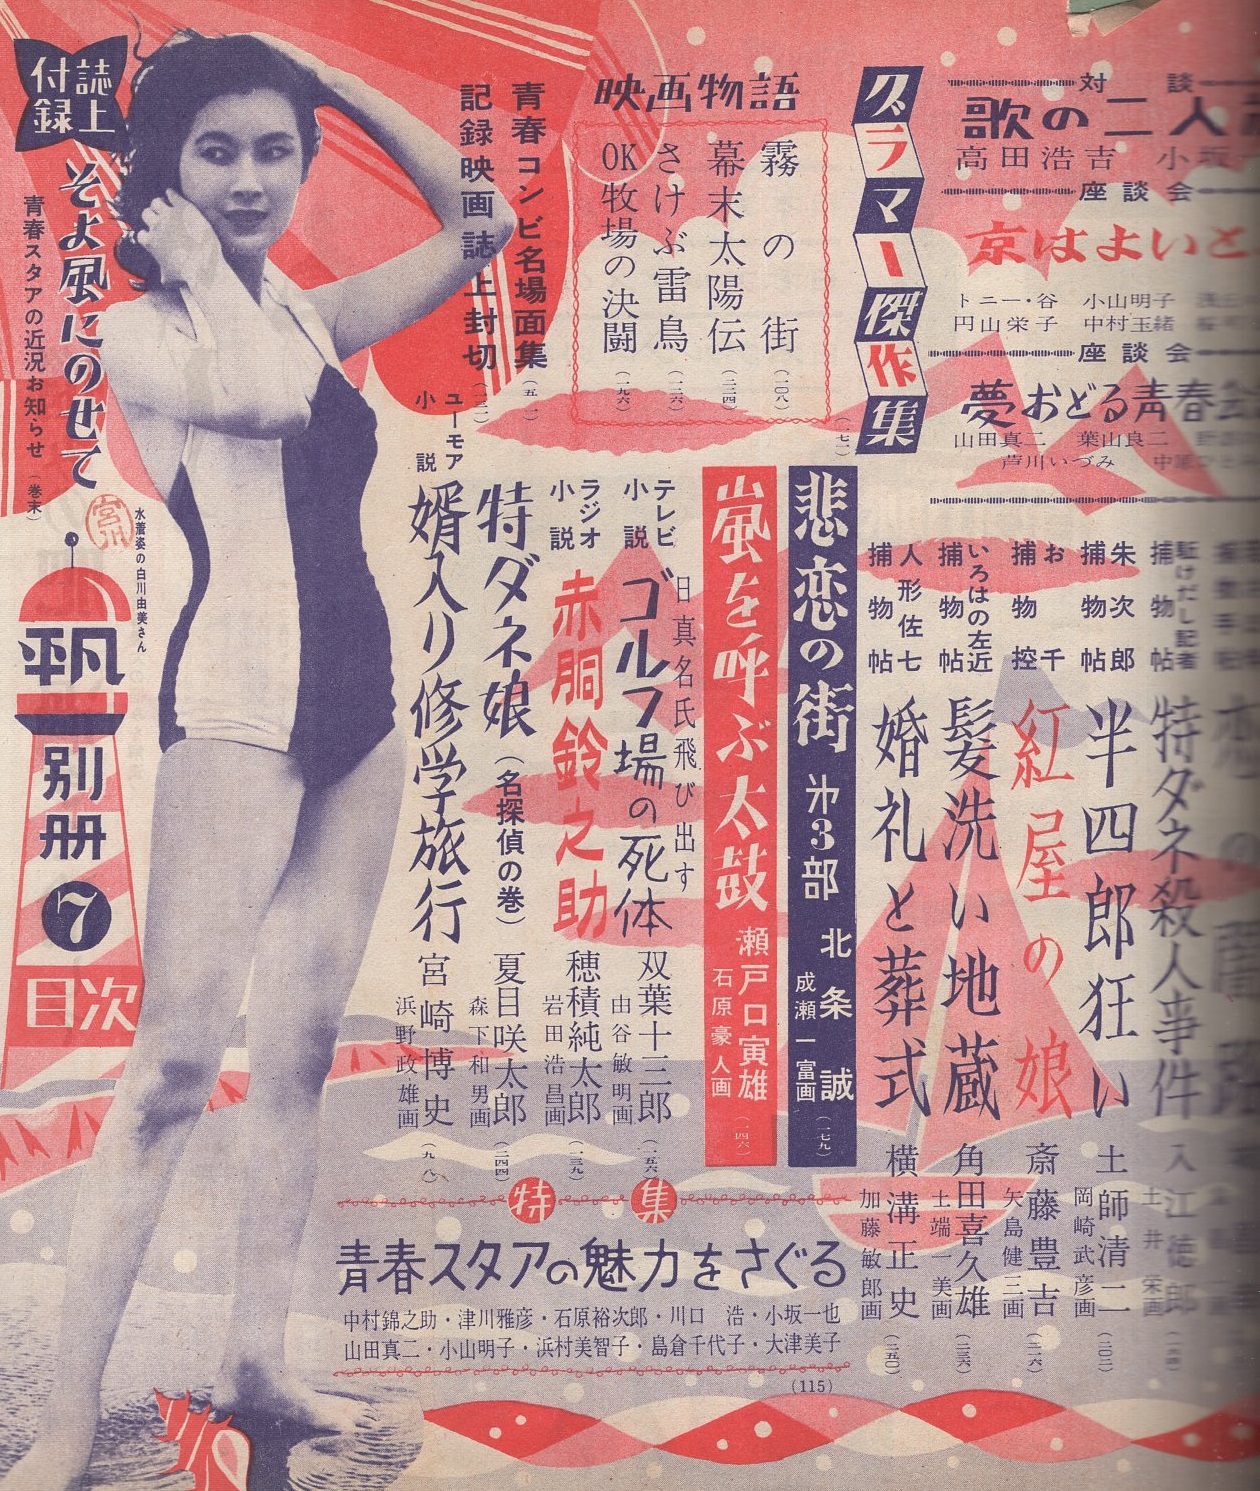 対談
歌の二人
高田浩吉　小坂
座談会
京はよいと
トニー・谷　小山明子
円山栄子　中村玉緒
座談会
夢おどる青春
山田真二　葉山良二
芦川いづみ
グラマー傑作集
(一七)
映画物語
霧の街
(二〇八)
幕末太陽伝
(二二四)
さけぶ雷鳥
OK牧場の決闘
(一九六)
青春コンビ名場面集
(五一)
記録映画誌上封切
駈けだし記者捕物帖
特ダネ殺人事件
入江徳郎
土井栄画
朱次郎捕物帖
半四郎狂い
土師清二
岡崎武彦画
(三〇二)
お千捕物控
紅屋の娘
斎藤豊吉
矢島健三画
いろはの左近捕物帖
髪洗い地蔵
角田喜久雄
土端一美画
(二三六)
人形佐七捕物帖
婚礼と葬式
横溝正史
加藤敏郎画
(二五〇)
悲恋の街　第3部
北条誠
成瀬一富画
(一七九)
嵐を呼ぶ太鼓
瀬戸口寅雄
石原豪人画
(一四六)
テレビ小説
日真名氏飛び出す
ゴルフ場の死体
双葉十三郎
由谷敏明画
(一五六)
ラジオ小説
赤胴鈴之助
穂積純太郎
岩田浩昌画
(一三九)
ユーモア小説
特ダネ娘(名探偵の巻)
夏目咲太郎
森下和男画
(二四四)
婿入り修学旅行
宮崎博史
浜野政雄画
(九八)
特集
青春スタアの魅力をさぐる
中村錦之助・津川雅彦・石原裕次郎・川口　浩・小坂一也
山田真二・小山明子・浜村美智子・島倉千代子・大津美子
(115)
誌上付録
そよ風にのせて
青春スタアの近況お知らせ
(巻末)
宮川
水着姿の白川由美さん
平凡
別册
7
目次